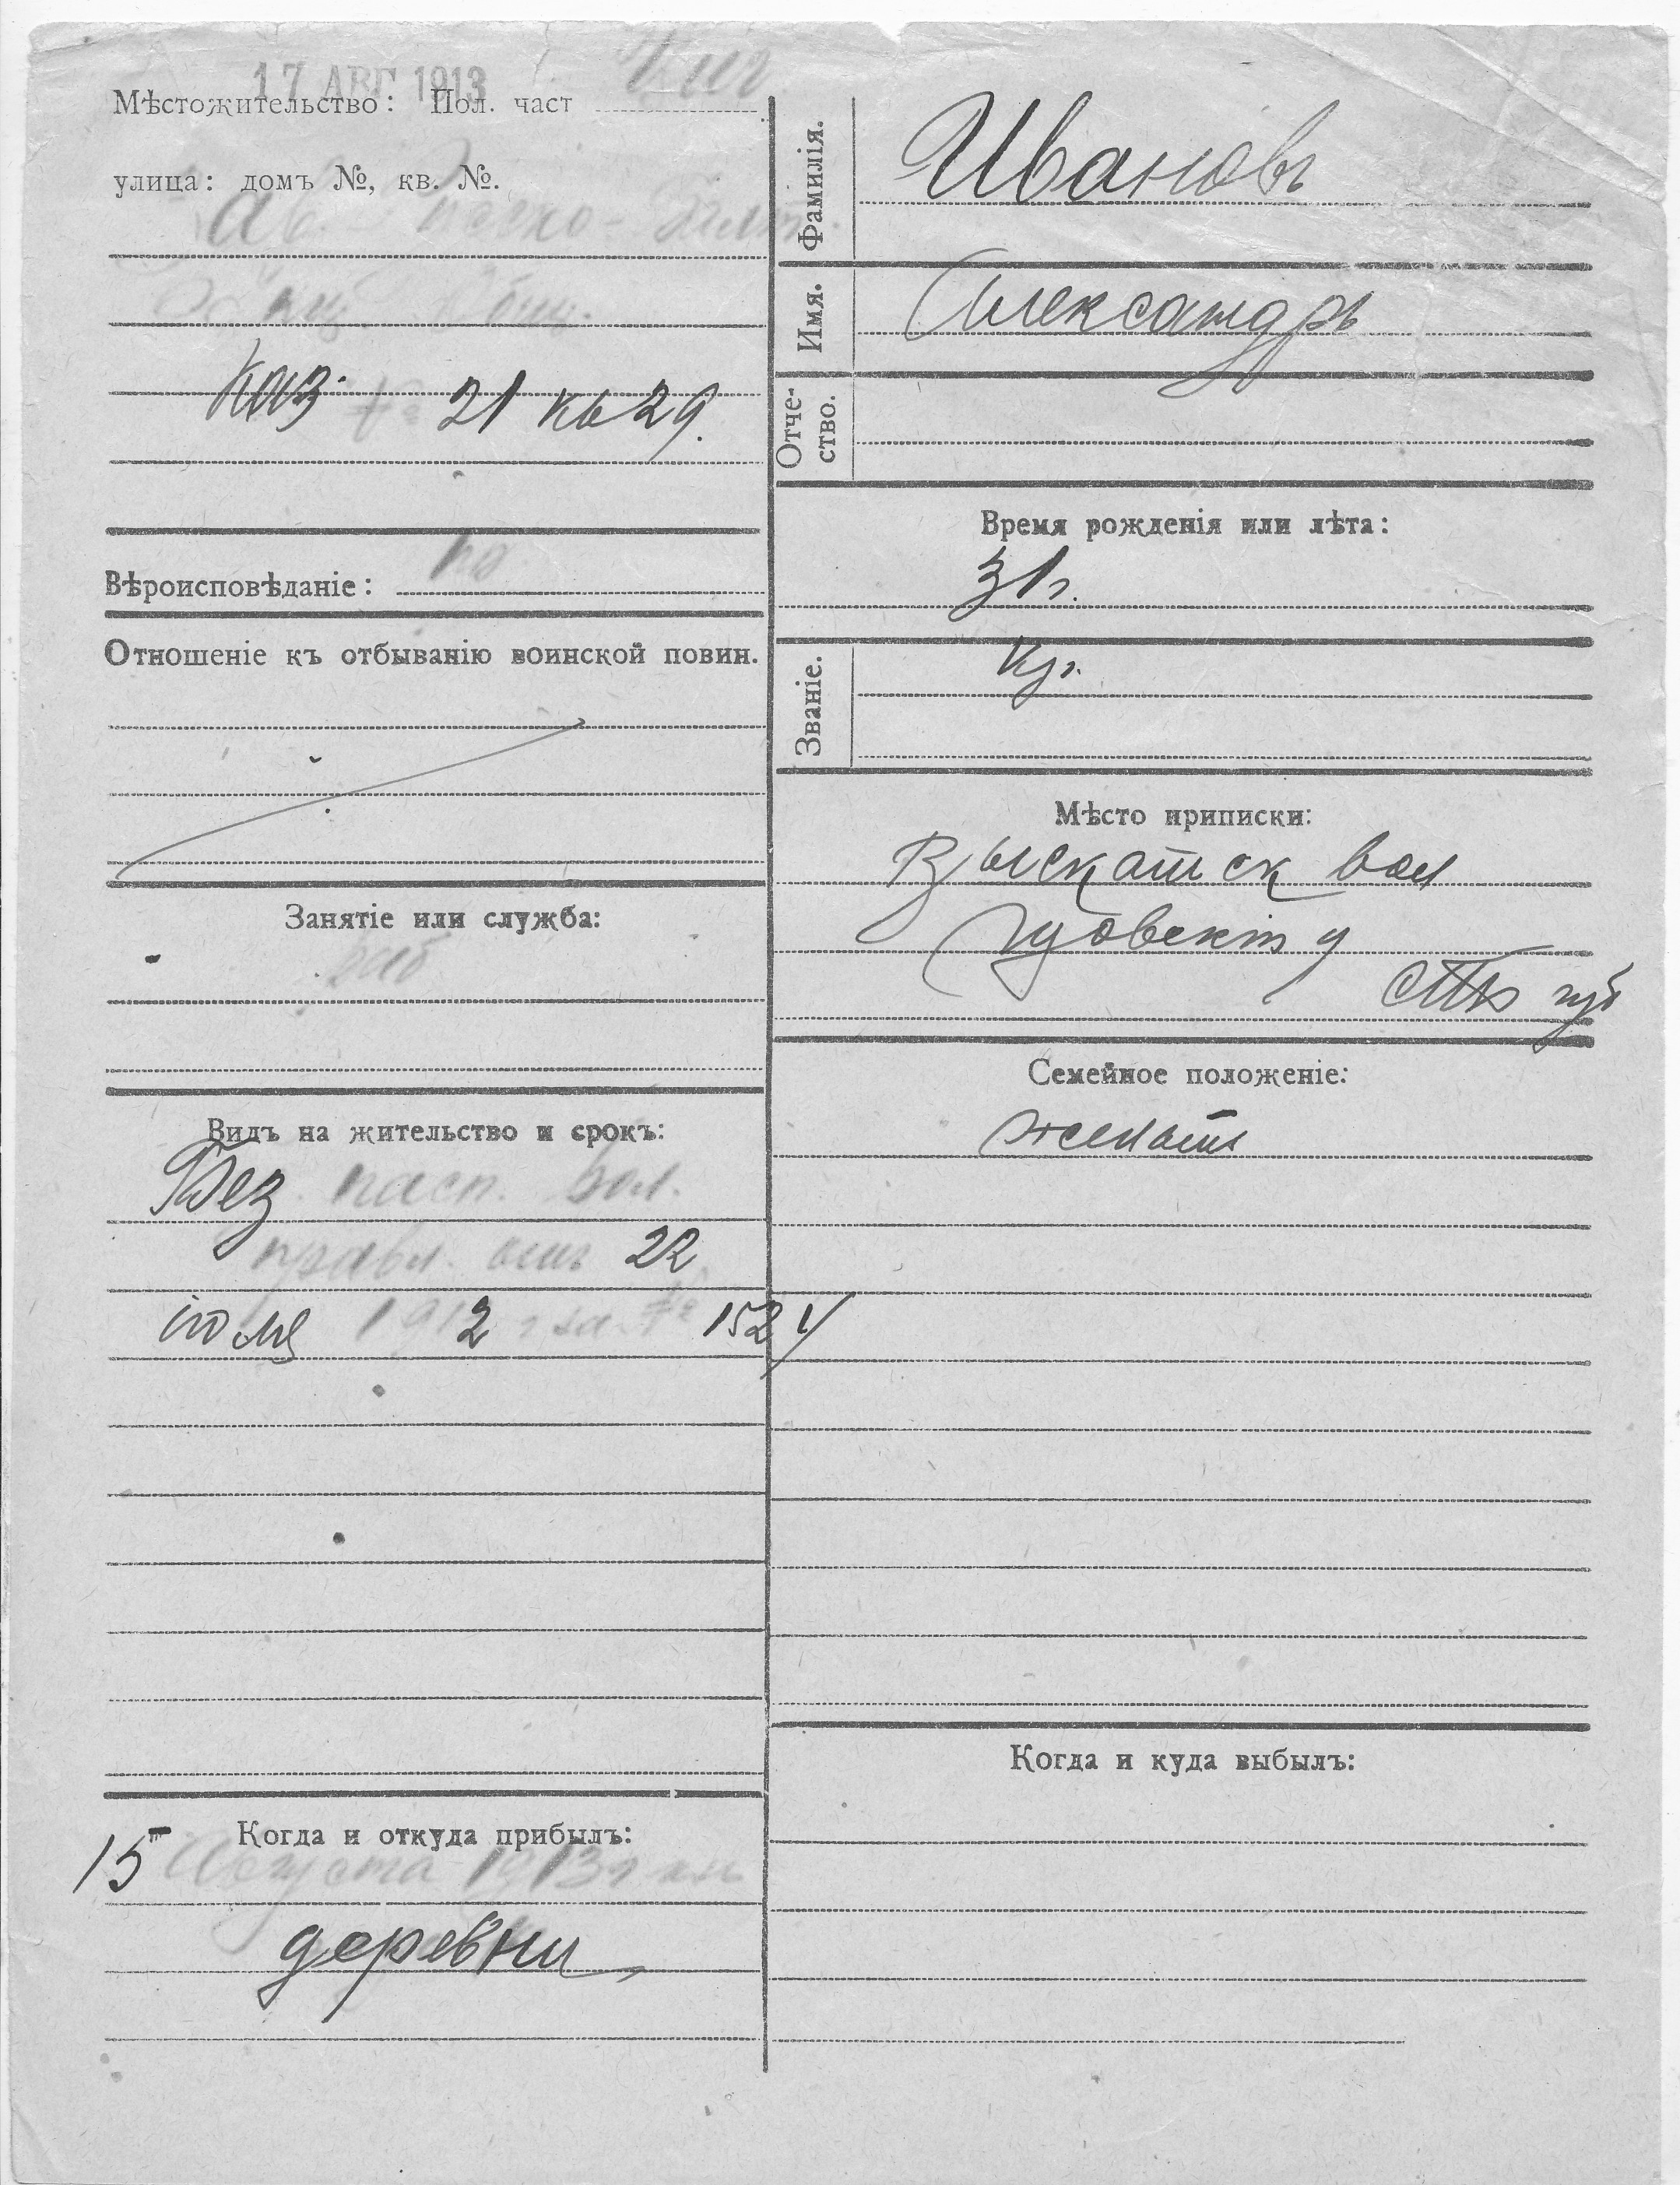 17 АВГ 1913
Мѣстожительство: Пол. част
улица: домъ №, кв. №.
Каз. № 21 кв 29.
Вѣроисповѣданіе:
Отношеніе къ отбыванію воинской повин.
Занятіе или служба:
раб
Видъ на жительство и срокъ:
Без. пасп. вол.
правл. отъ 22
іюля 1912 г за № 1524
Когда и откуда прибылъ:
15 Августа 1913 г изъ
деревни
Фамилія.
Ивановъ
Имя.
Александръ
Отче-
ство.
Время рожденія или лѣта:
31 г.
Званіе.
Кр.
Мѣсто приписки:
Выскатск вол
Гдовскаго у
СПБ губ
Семейное положеніе:
женатъ
Когда и куда выбылъ: